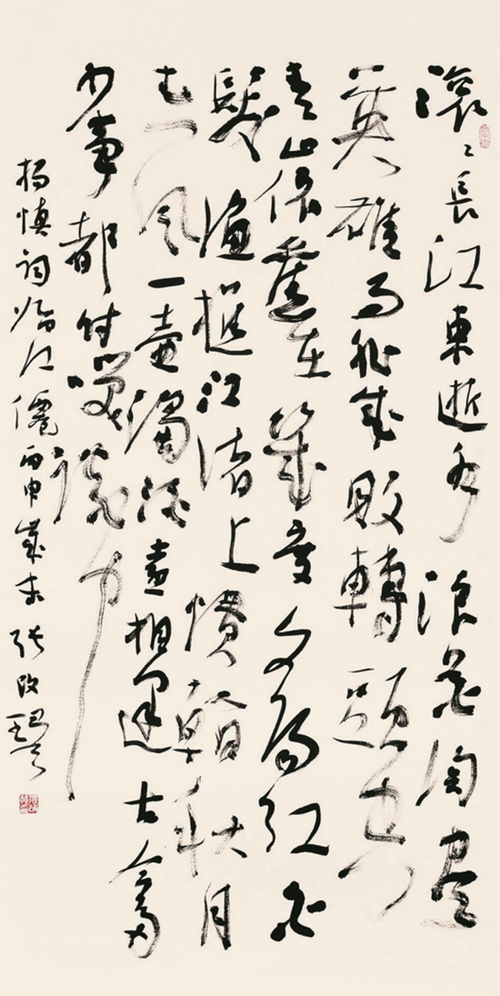 滚〻長江東逝水浪花淘盡
英雄是非成敗轉頭空
青山依舊在幾度夕陽紅白
髮漁樵江渚上慣看秋月
春風一壺濁酒喜相逢古今多
少事都付笑談中
楊慎詞臨江僊丙申歲末張改琴